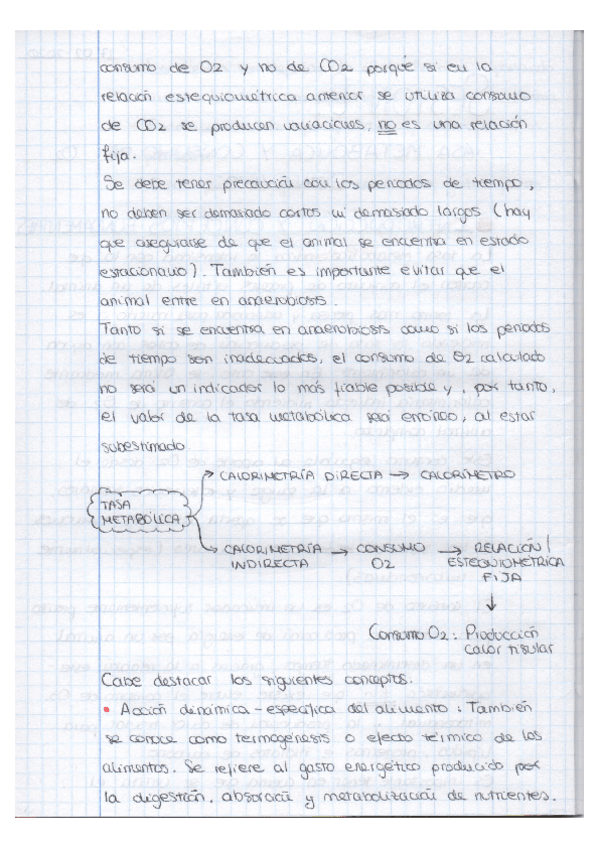 consumo de O2 y no de CO2 porqué si en la
relación estequiométrica anterior se utiliza consumo
de CO2 se producen variaciones, no es una relación
fija.
Se debe tener precaución con los periodos de tiempo,
no deben ser demasiado cortos ni demasiado largos (hay
que asegurarse de que el animal se encuentra en estado
estacionario). También es importante evitar que el
animal entre en anaerobiosis.
Tanto si se encuentra en anaerobiosis como si los periodos
de tiempo son inadecuados, el consumo de O2 calculado
no será un indicador lo más fiable posible y, por tanto,
el valor de la tasa metabólica será erróneo, al estar
subestimado.
→ CALORIMETRÍA DIRECTA → CALORÍMETRO
TASA
METABÓLICA
→ CALORIMETRÍA → CONSUMO → RELACIÓN
INDIRECTA O2 ESTEQUIOMÉTRICA
FIJA
↓
Consumo O2 : Producción
calor tisular
Cabe destacar los siguientes conceptos.
• Acción dinámica-específica del alimento : También
se conoce como termogénesis o efecto térmico de los
alimentos. Se refiere al gasto energético producido por
la digestión, absorción y metabolización de nutrientes.